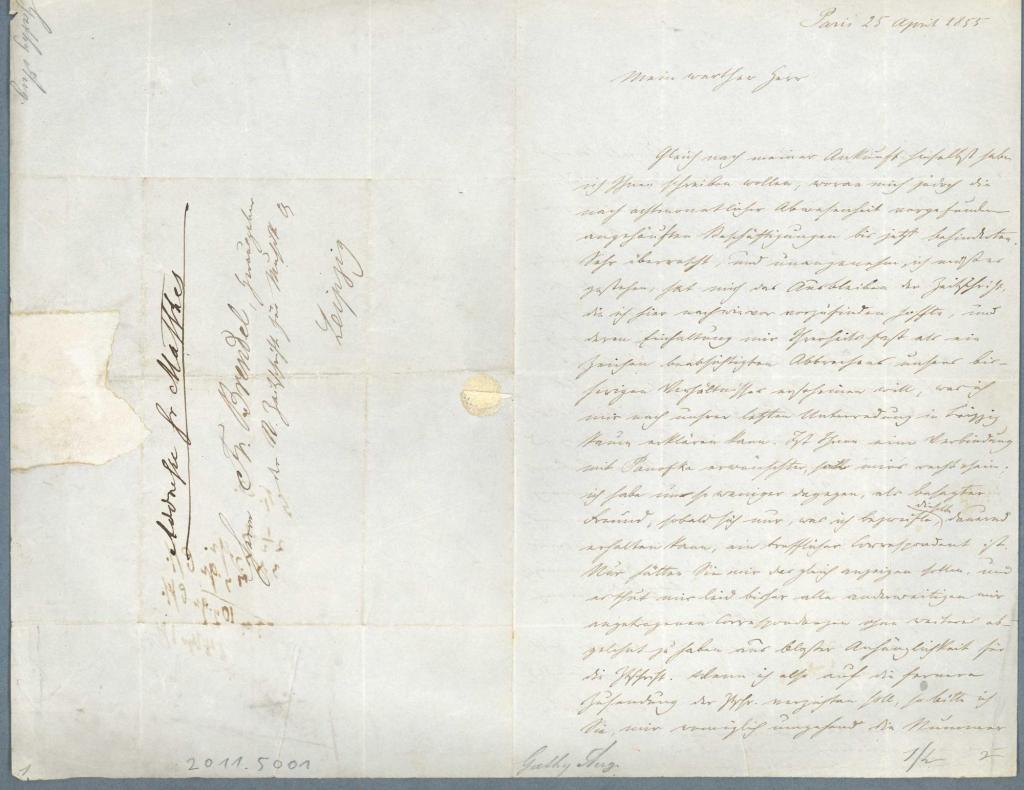 Paris 25 April 1855
Mein werther Herr
Gleich nach meiner Ankunft hieselbst habe
ich Ihnen schreiben wollen, woran mich jedoch die
nach achtmonatlicher Abwesenheit vorgefundenen
angehäuften Beschäftigungen bis jetzt behinderten.
Sehr überrascht, und unangenehm, ich muß es
gestehen, hat mich das Ausbleiben der Zeitschrift,
die ich hier nach wie vor vorzufinden hoffte, und
deren Einhaltung mir Ihrerseits fast als ein
Zeichen beabsichtigten Abbrechens unsers bis-
herigen Verhältnisses erscheinen will, was ich
mir nach unsrer letzten Unterredung in Leipzig
kaum erklären kann. Ist Ihnen eine Verbindung
mit Panofka erwünschter, soll mirs recht sein.
ich habe um so weniger dagegen, als besagter
Freund, sobald sich nur, was ich bezweifle, dieselbe dauernd
erhalten kann, ein trefflicher Correspondent ist.
Nur hätten Sie mir das gleich anzeigen sollen, und
es thut mir leid bisher alle anderweitigen mir
angetragenen Correspondenzen ohne weiteres ab-
gelehnt zu haben aus bloßer Anhänglichkeit für
die Ztschrift. Wenn ich also auf die fernere
Zusendung der Ztschr. verzichten soll, so bitte ich
Sie, mir womöglich umgehend die Nummer
1/2 2
Gathy Aug.
Gathy Aug.
Addresse Fr Matthes
Herrn Fr. Brendel, Herausgeber
der N. Zeitschrift für Musik
Leipzig
2011.5001
1